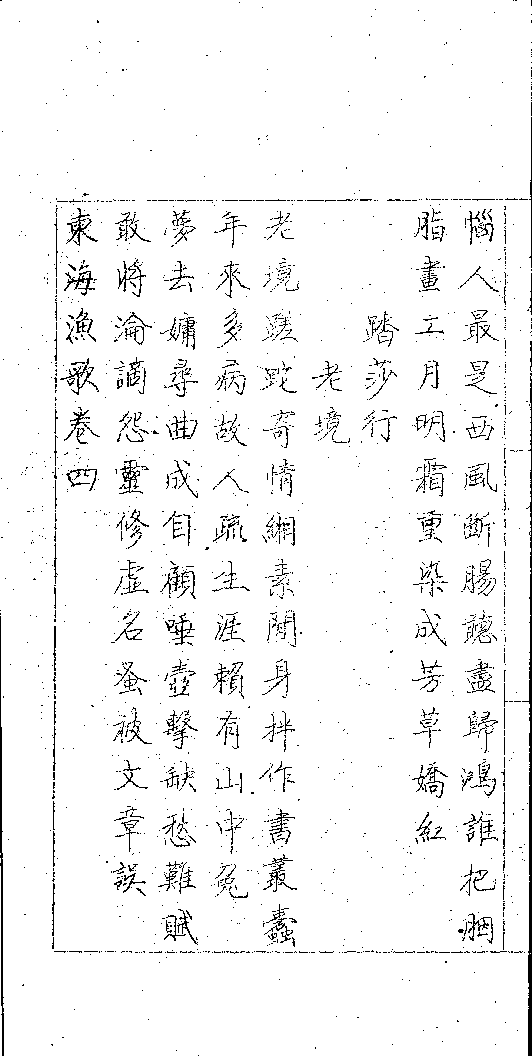 惱人最是西風斷腸聽盡歸鴻誰把胭
脂畫工月明霜重染成芳草嬌紅
踏莎行
老境
老境蹉跎奇情網素閒身拌作書叢蠹
年來多病故人疏生涯賴有山中兔
夢去慵尋曲成自顧唾壺擊缺愁難賦
敢將淪謫怨靈修虛名蚤被文章誤
東海漁歌卷四